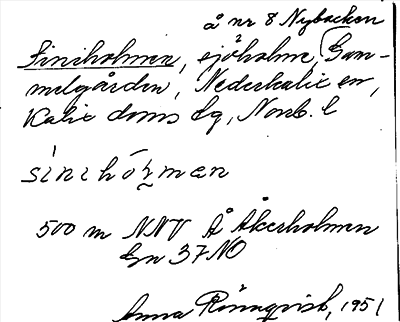 å nr 8 Nybacken
Siniholmen, sjöholme, Gam-
melgården, Nederkalix sn,
Kalix doms dg, Norrb. l
siniho̬lmen
500 m NNV Å Åkerholmen
Gn 37 NO
Anna Rönnqvist, 1951